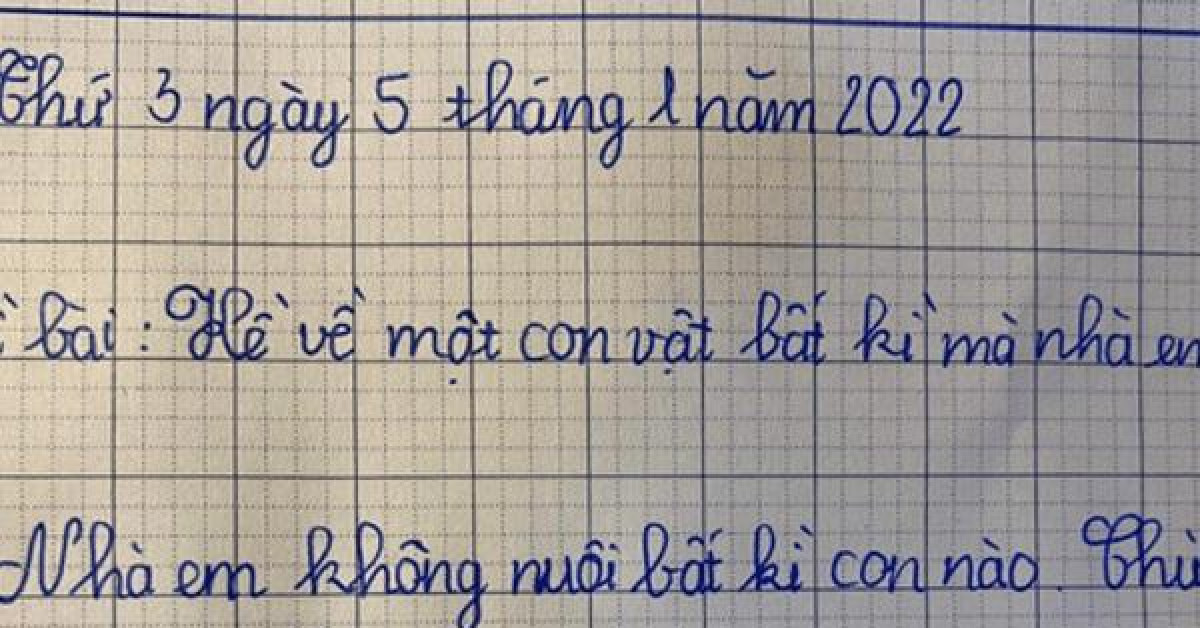 Thứ 3 ngày 5 tháng 1 năm 2022
bài: Kể về một con vật bất kì mà nhà em
Nhà em không nuôi bất kì con nào. Thỉ